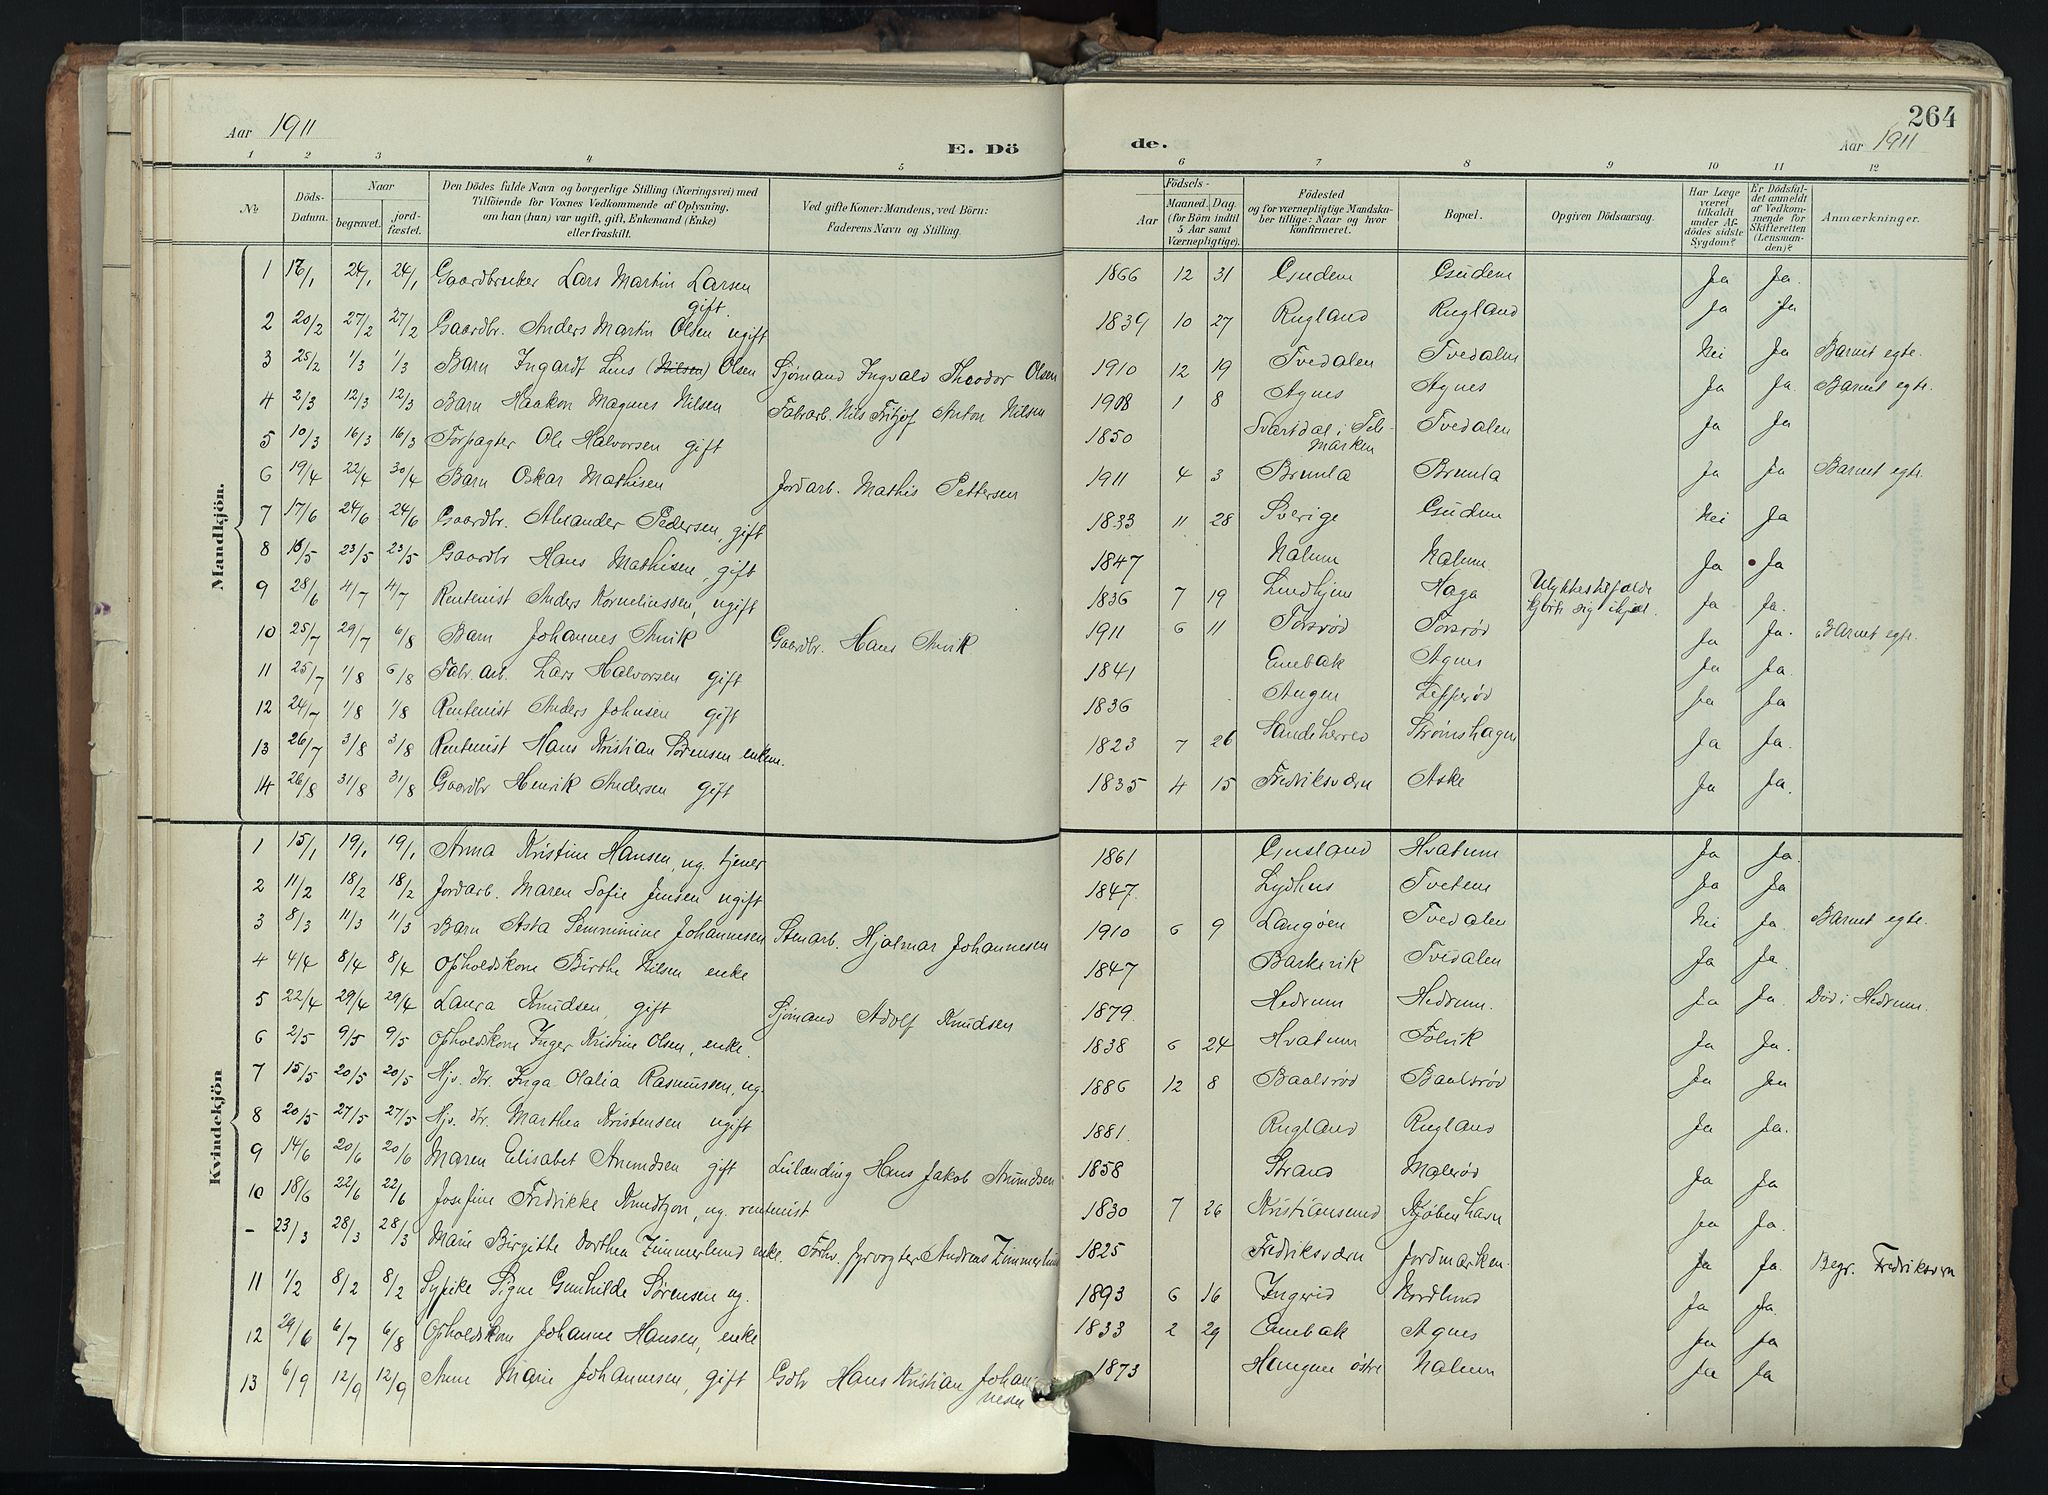 Aar 1911
E. Dö
de.
264
Aar 1911
1 2 3 4 5 6 7 8 9 10 11 12
№ Döds-Datum. Naar begravet. jordfæstet. Den Dödes fulde Navn og borgerlige Stilling (Næringsvei) med Tilföiende for Voxnes Vedkommende af Oplysning, om han (hun) var ugift, gift, Enkemand (Enke) eller fraskilt. Ved gifte Koner: Mandens, ved Börn: Faderens Navn og Stilling. Födsels- Aar Maaned. Dag. (for Börn indtil 5 Aar samt Værnepligtige). Födested og for værnepligtige Mandskaber tillige: Naar og hvor konfirmeret. Bopæl. Opgiven Dödsaarsag. Har Læge været tilkaldt under Afdödes sidste Sygdom? Er Dödsfaldet anmeldt af Vedkommende for Skifteretten (Lensmanden)? Anmærkninger.
Mandkjön.
1 24/1 24/1 Gaardbruker Lars Martin Larsen gift 1866 12 31 Gudem Gudem Ja Ja.
2 20/2 27/2 27/2 Gaardbr. Anders Martin Olsen ugift 1839 10 27 Rugland Rugland Ja Ja
3 25/2 1/3 1/3 Barn Ingardt Linus (Nilsen) Olsen Sjømand Ingvald Theodor Olsen 1910 12 19 Tvedalen Tvedalen Nei Ja Barnet egte.
4 2/3 12/3 12/3 Barn Haakon Magnus Nilsen Fabrarb. Nils Fritjof Anton Nilsen 1908 1 8 Agnes Agnes Ja Ja. Barnet egte.
5 10/3 16/3 16/3 Forpagter Ole Halvorsen gift 1850 Svartdal i Telemarken Tvedalen Ja Ja
6 19/4 22/4 30/4 Barn Oskar Mathisen Jordarb. Mathis Pettersen 1911 4 3 Brunla Brunla Ja Ja Barnet egte.
7 17/6 24/6 24/6 Gaardbr. Alexander Pedersen, gift 1833 11 28 Sverige Gudem Nei Ja
8 23/5 23/5 Gaardbr Hans Mathisen, gift 1847 Nalum Nalum Ja Ja
9 28/6 4/7 4/7 Rentenist Anders Korneliussen, ugift 1836 7 19 Lindhjem Haga Ulykkestilfælde Ja Ja.
10 25/7 29/7 6/8 Barn Johannes Anvik Gaardbr. Hans Anvik 1911 6 11 Torsrød Torsrød Ja Ja. Barnet egte.
11 25/7 1/8 6/8 Fabr. arb. Lars Halvorsen gift 1841 Enebak Agnes Ja Ja.
12 24/7 1/8 1/8 Rentenist Anders Johnsen gift 1836 Ja Ja
13 26/7 3/8 3/8 Rentenist Hans Kristian Sørensen enkem. 1823 7 26 Sandeherred Strømshagen Ja Ja.
14 26/8 31/8 31/8 Gaardbr Henrik Andersen gift 1835 4 15 Fredriksværn Aske Ja Ja.
Kvindekjön
1 15/1 19/1 19/1 Anna Kristine Hansen, ug. tjener 1861 Gusland Hvatum Ja Ja.
2 11/2 18/2 18/2 Jordarb. Maren Sofie Jensen ugift 1847. Lydhus Tveten Ja Ja
3 8/3 11/3 11/3 Barn Asta Semmine Johannesen Stenarb. Hjalmar Johannesen 1910 6 9 Langøen Tvedalen Nei Ja. Barnet egte.
4 4/4 8/4 8/4 Opholdskone Birthe Nilsen enke 1847 Barkevik Tvedalen Ja Ja.
5 22/4 29/4 29/4 Laura Knudsen, gift Sjømand Adolf Knudsen 1879. Hedrum Hedrum. Ja Ja. Død i Hedrum.
6 2/5 9/5 9/5 Opholdskone Inger Kristine Olsen, enke. 1838 6 24 Hvatum Folvik Ja Ja.
7 15/5 20/5 20/5 Hjv. dtr. Inga Olalia Rasmussen, ug. 1886 12 8 Baalsrød Baalsrød Ja Ja
8 20/5 27/5 27/5 Hjv. dtr. Marthea Kristensen ugift 1881. Rugland Rugland Ja Ja.
9 14/6 20/6 20/6 Maren Elisabet Amundsen gift Leilænding Hans Jakob Amundsen 1858 Strand Malerød Ja Ja
10 18/6 22/6 22/6 Josefine Fredrikke Knudtzon, ug. rentenist 1830 7 26 Kristiansund Kjøbenhavn Ja Ja.
- 23/3 28/3 28/3 Marie Birgitte Dorthea Zimmerlund enke. Forhv. fyrvogter Andreas Zimmerlund 1825 Fredriksværn Jordmærken. Ja Ja. Begr. Fredriksvern
11 1/2 8/2 8/2 Sypike Signe Gunhilde Sørensen ug. 1893 6 16 Ingerid Nordlund Ja Ja.
12 29/6 6/7 6/8 Opholdskone Johanne Hansen, enke 1833 2 29 Enebak Agnes Ja Ja
13 6/9 12/9 12/9 Anne Marie Johannesen, gift Gdbr Hans Kristian Johannesen 1873 østre Nalum Ja Ja